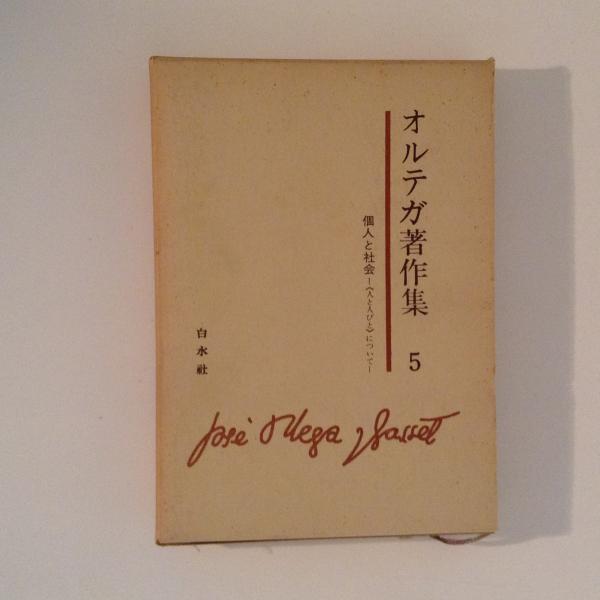 オルテガ著作集 5
個人と社会―《人と人びと》について―
白水社
José Ortega y Gasset